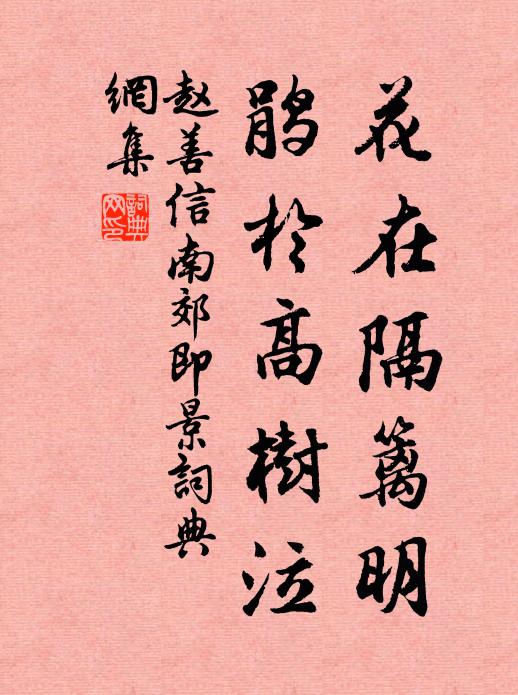 花在隔篱明
鹃於高樹泣
赵善信南郊即景詞典
網集
詞典
网印